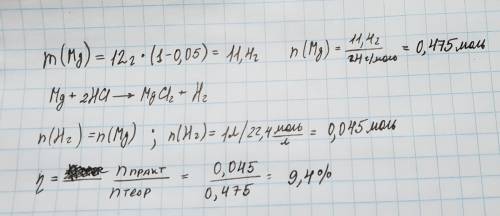 m(Mg) = 12г · (1-0,05) = 11,4г n(Mg) = 11,4г / 24г/моль = 0,475 моль
Mg + 2HCl → MgCl₂ + H₂
n(H₂) = n(Mg) ; n(H₂) = 1л / 22,4 моль/л = 0,045 моль
η = nпракт / nтеор = 0,045 / 0,475 = 9,4%